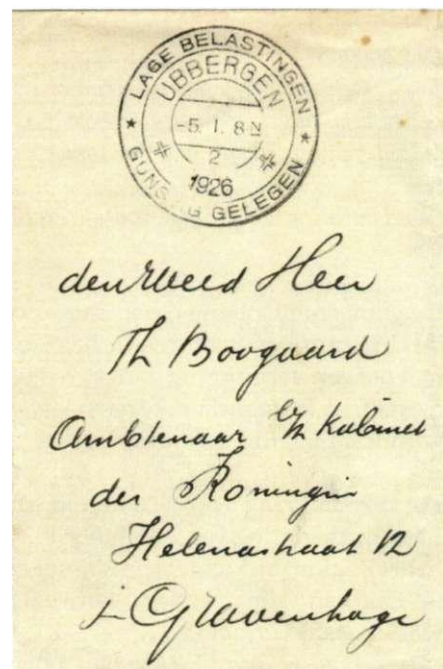 LAGE BELASTINGEN
UBBERGEN
-5. 1. 8 N
2
1926
GUNSTIG GELEGEN
den Weled Heer
Th Boogaard
Ambtenaar Kabinet
der Koningin
Helenastraat 12
s Gravenhage